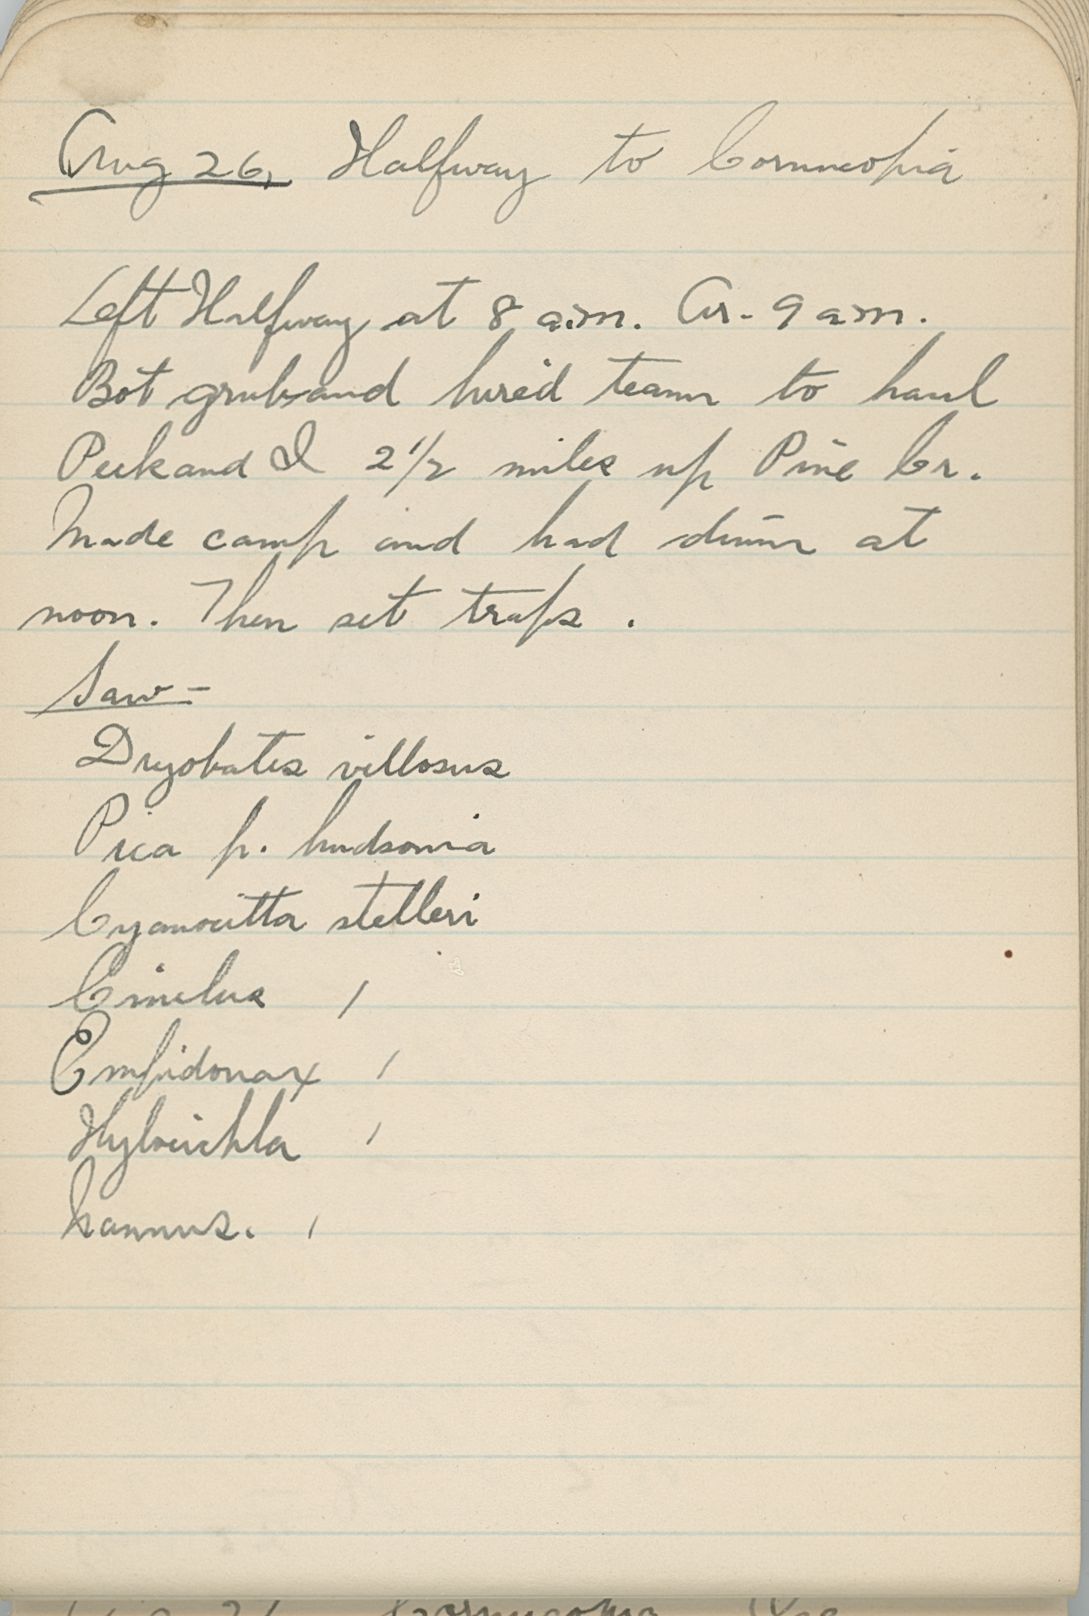 Aug 26, Halfway to Cornucopia
Left Halfway at 8 a.m. Ar. 9 am.
Bot grub and hired team to haul
Peck and I 2 1/2 miles up Pine Cr.
Made camp and had dinner at
noon. Then set traps.
Saw -
Dryobates villosus
Pica p. hudsonia
Cyanocitta stelleri
Cinclus 1
Empidonax 1
Hylocichla 1
1
Cornucopia